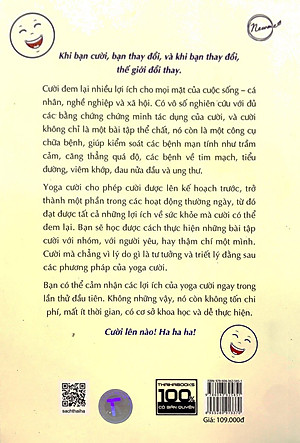 Newme
Khi bạn cười, bạn thay đổi, và khi bạn thay đổi,
thế giới đổi thay.
Cười đem lại nhiều lợi ích cho mọi mặt của cuộc sống – cá
nhân, nghề nghiệp và xã hội. Có vô số nghiên cứu với đủ
các bằng chứng chứng minh tác dụng của cười, và cười
không chỉ là một bài tập thể chất, nó còn là một công cụ
chữa bệnh, giúp kiểm soát các bệnh mạn tính như trầm
cảm, căng thẳng quá độ, các bệnh về tim mạch, tiểu
đường, viêm khớp, đau nửa đầu và ung thư.
Yoga cười cho phép cười được lên kế hoạch trước, trở
thành một phần trong các hoạt động thường ngày, từ đó
đạt được tất cả những lợi ích về sức khỏe mà cười có thể
đem lại. Bạn sẽ học được cách thực hiện những bài tập
cười với nhóm, với người yêu, hay thậm chí một mình.
Cười mà chẳng vì lý do gì là tư tưởng và triết lý đằng sau
các phương pháp của yoga cười.
Bạn có thể cảm nhận các lợi ích của yoga cười ngay trong
lần thử đầu tiên. Không những vậy, nó còn không tốn chi
phí, mất ít thời gian, có cơ sở khoa học và dễ thực hiện.
Cười lên nào! Ha ha ha!
sachthaiha
T
THAIHABOOKS
100%
CÓ BẢN QUYỀN
Giá: 109.000đ